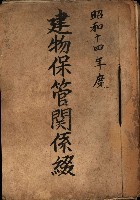 昭和十四年度
建物保管関係綴